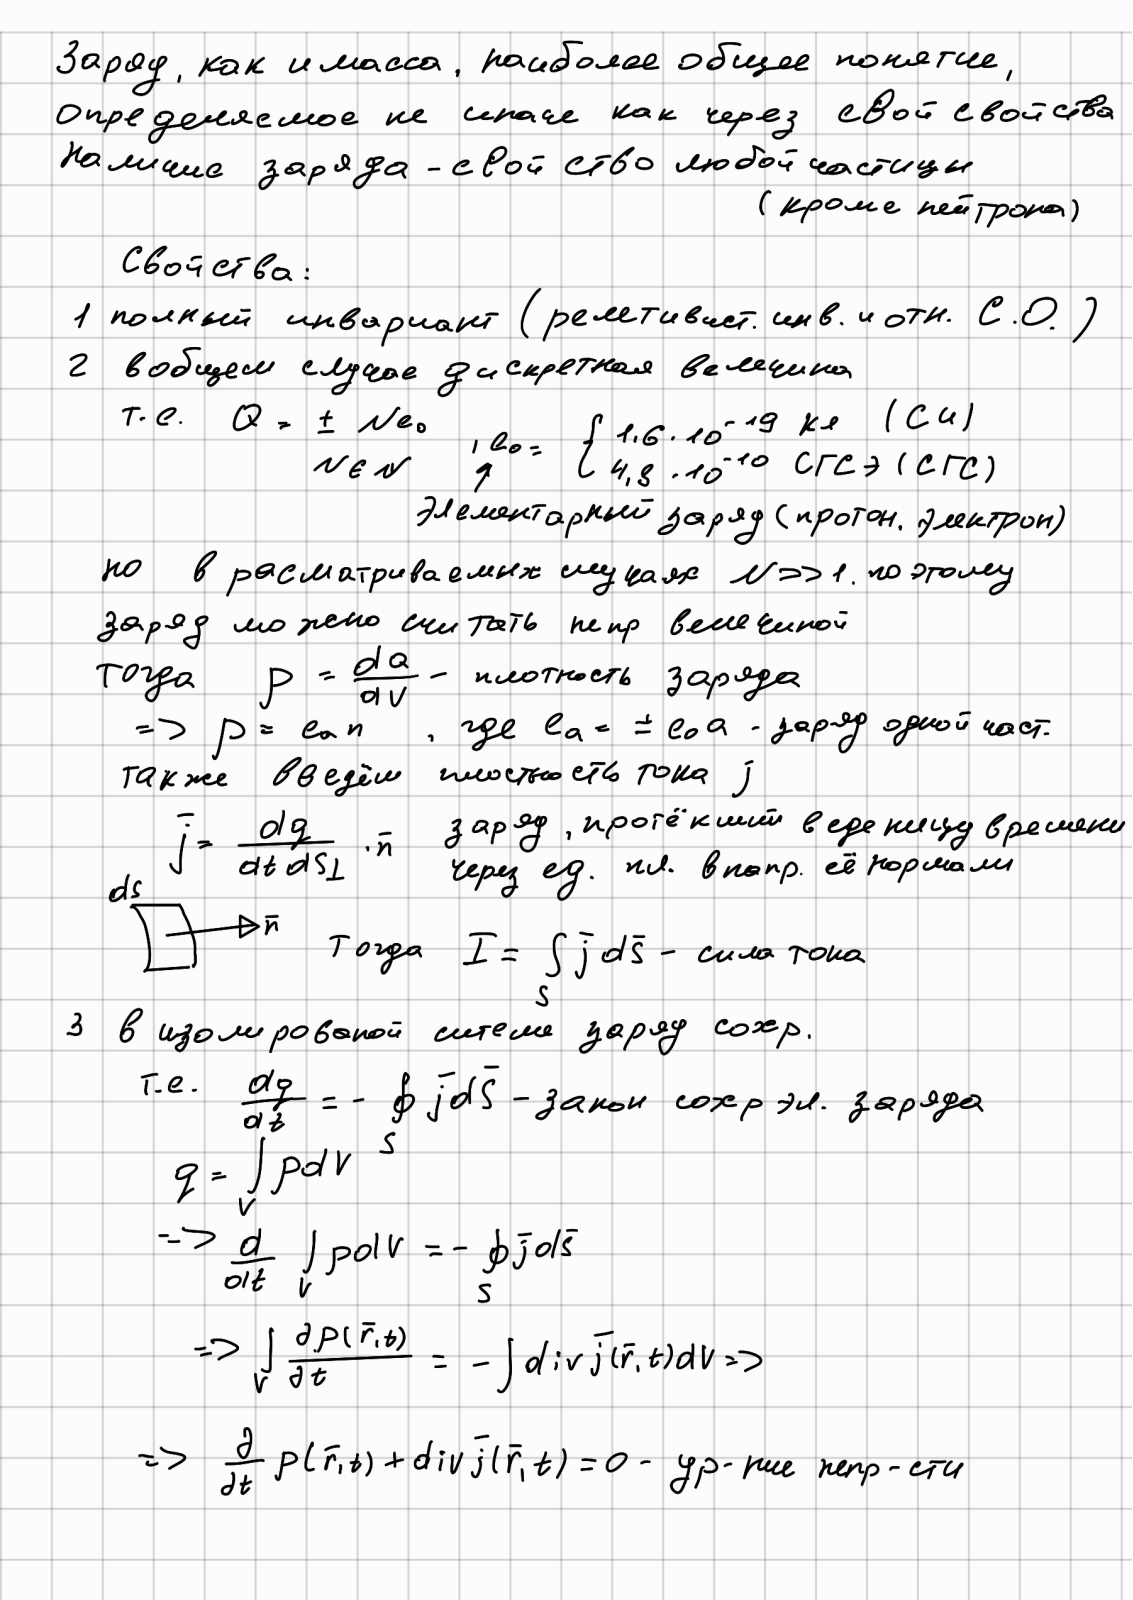 Заряд, как и масса, наиболее общее понятие,
определяемое не иначе как через свой свойства
Наличие заряда - свойство любой частицы
(кроме нейтрона)
Свойства:
1 полный инвариант (релетивист. инв. и отн. С.О.)
2 в общем случае дискретная величина
т.е. Q = ± Ne₀
N ∈ N , e₀ = { 1,6 · 10⁻¹⁹ кл (СИ)
4,8 · 10⁻¹⁰ СГСЭ (СГС)
элементарный заряд (протон, электрон)
но в расматриваемых случаях N >> 1. поэтому
заряд можно считать непр величиной
тогда ρ = dQ/dV - плотность заряда
=> ρ = eₐn , где eₐ = ± e₀a - заряд одной част.
также введём плостность тока j
j̅ = dq/(dt dS⊥) · n̅ заряд, протёкший в еденицу времени
через ед. пл. в напр. её нормали
ds
n̅
Тогда I = ∫ j̅ ds̅ - сила тока
S
3 в изолированой ситеме заряд сохр.
т.е. dq/dt = - ∮ j̅ dS̅ - закон сохр эл. заряда
S
q = ∫ ρdV
V
=> d/dt ∫ ρdV = - ∮ j̅ ds̅
V S
=> ∫ ∂ρ(r̅,t)/∂t = - ∫ div j̅(r̅,t)dV =>
V
=> ∂/∂t ρ(r̅,t) + div j̅(r̅,t) = 0 - ур-ние непр-сти